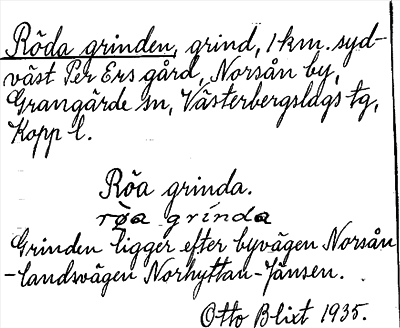 Röda grinden, grind, 1 km. syd-
väst Per Ers gård, Norsån by,
Grangärde sn, Västerbergslags tg,
Kopp l.
Röa grinda.
rø̀a grínda
Grinden ligger efter byvägen Norsån
-landsvägen Norhyttan-Jänsen.
Otto Blixt 1935.